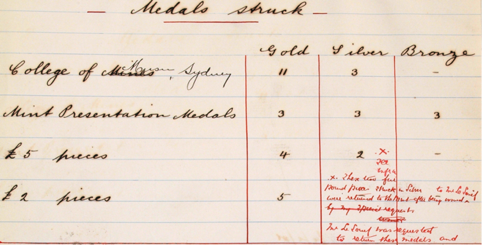 — Medals struck —
Gold Silver Bronze
College of Music, Sydney 11 3 -
Mint Presentation Medals 3 3 3
£5 pieces 4 2 x.
x. These two five
pound pieces struck in Silver to Mr Le Souef
were returned to the Mint after being
£2 pieces 5
Mr Le Souef was requested
to return these medals and